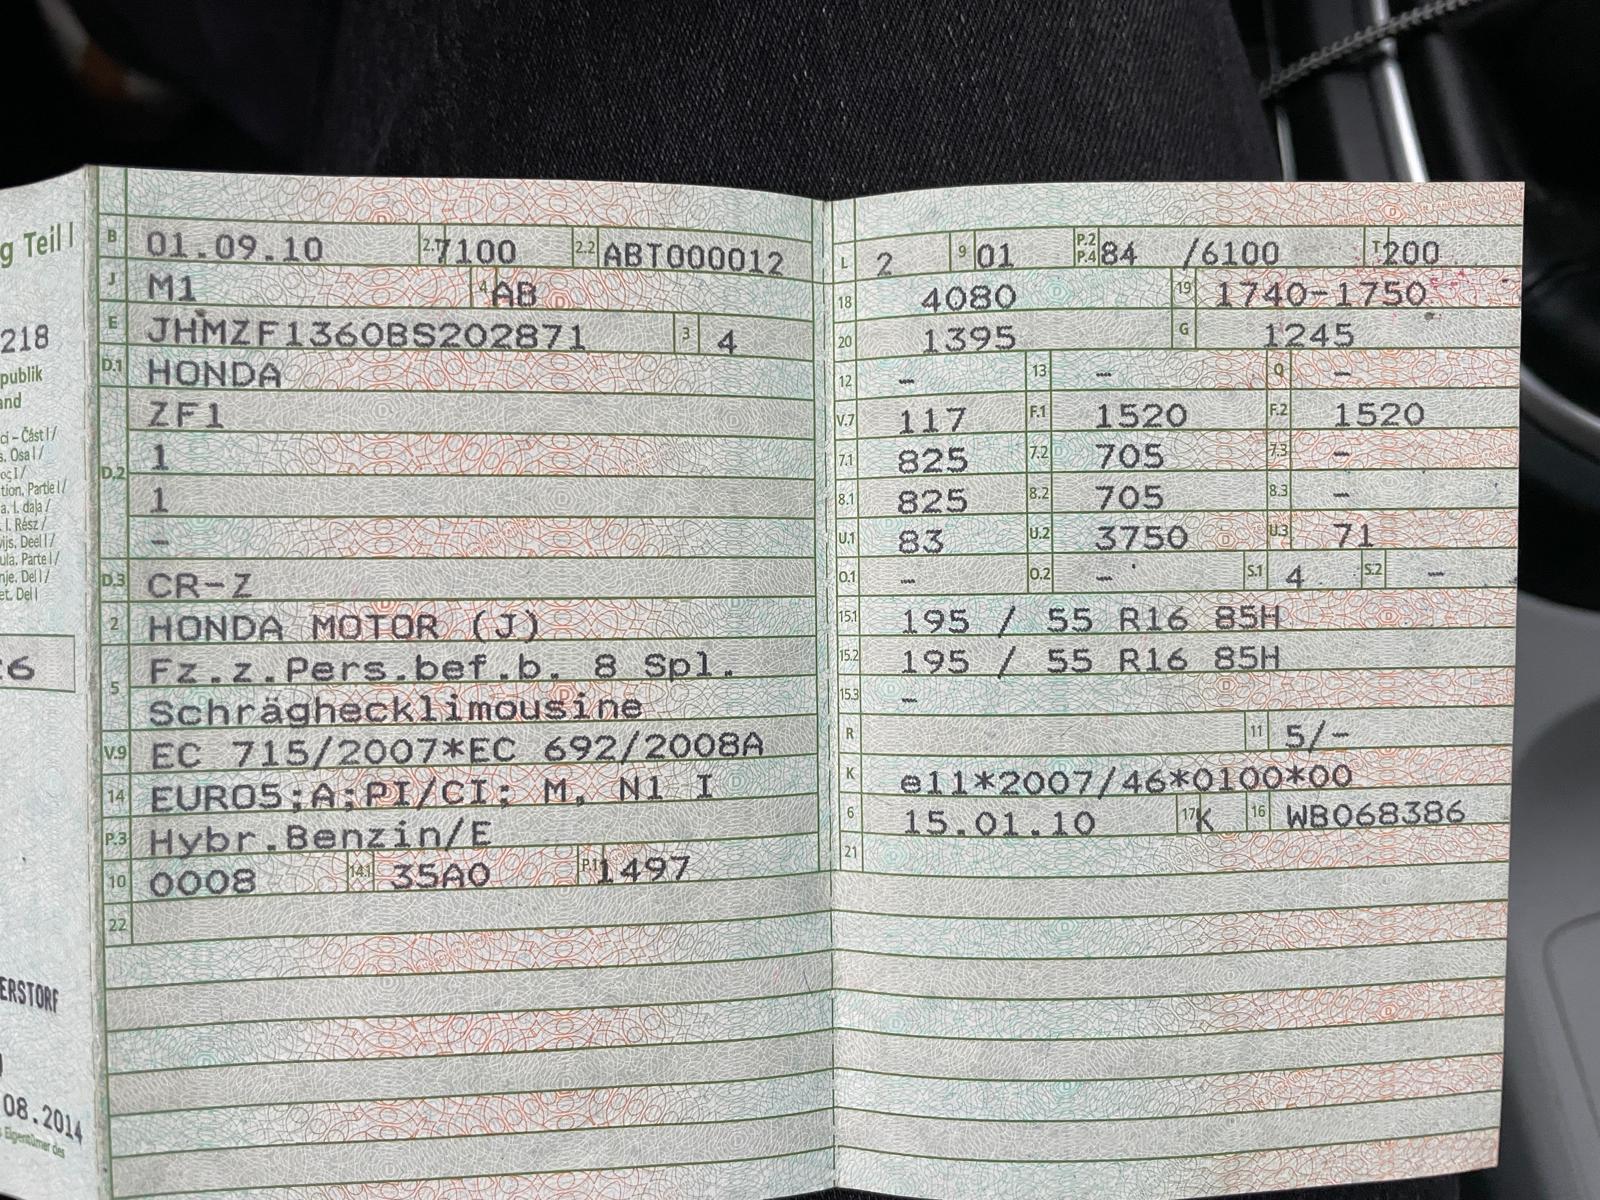 g Teil I
218
publik
and
ci – Část I /
s. Osa I /
oc I /
tion, Partie I /
a. I. daļa /
. I. Rész /
vijs. Deel I /
ula. Parte I /
nje. Del I /
et. Del I
6
ERSTORF
08.2014
B 01.09.10 2.1 7100 2.2 ABT000012
J M1 4 AB
E JHMZF1360BS202871 3 4
D.1 HONDA
ZF1
D.2 1
1
–
D.3 CR-Z
2 HONDA MOTOR (J)
5 Fz.z.Pers.bef.b. 8 Spl.
Schräghecklimousine
V.9 EC 715/2007*EC 692/2008A
14 EURO5;A;PI/CI; M, N1 I
P.3 Hybr.Benzin/E
10 0008 14.1 35A0 P.1 1497
22
L 2 9 01 P.2 P.4 84 /6100 T 200
18 4080 19 1740-1750
20 1395 G 1245
12 – 13 – Q –
V.7 117 F.1 1520 F.2 1520
7.1 825 7.2 705 7.3 –
8.1 825 8.2 705 8.3 –
U.1 83 U.2 3750 U.3 71
O.1 – O.2 – S.1 4 S.2 –
15.1 195 / 55 R16 85H
15.2 195 / 55 R16 85H
15.3 –
R 11 5/–
K e11*2007/46*0100*00
6 15.01.10 17 K 16 WB068386
21